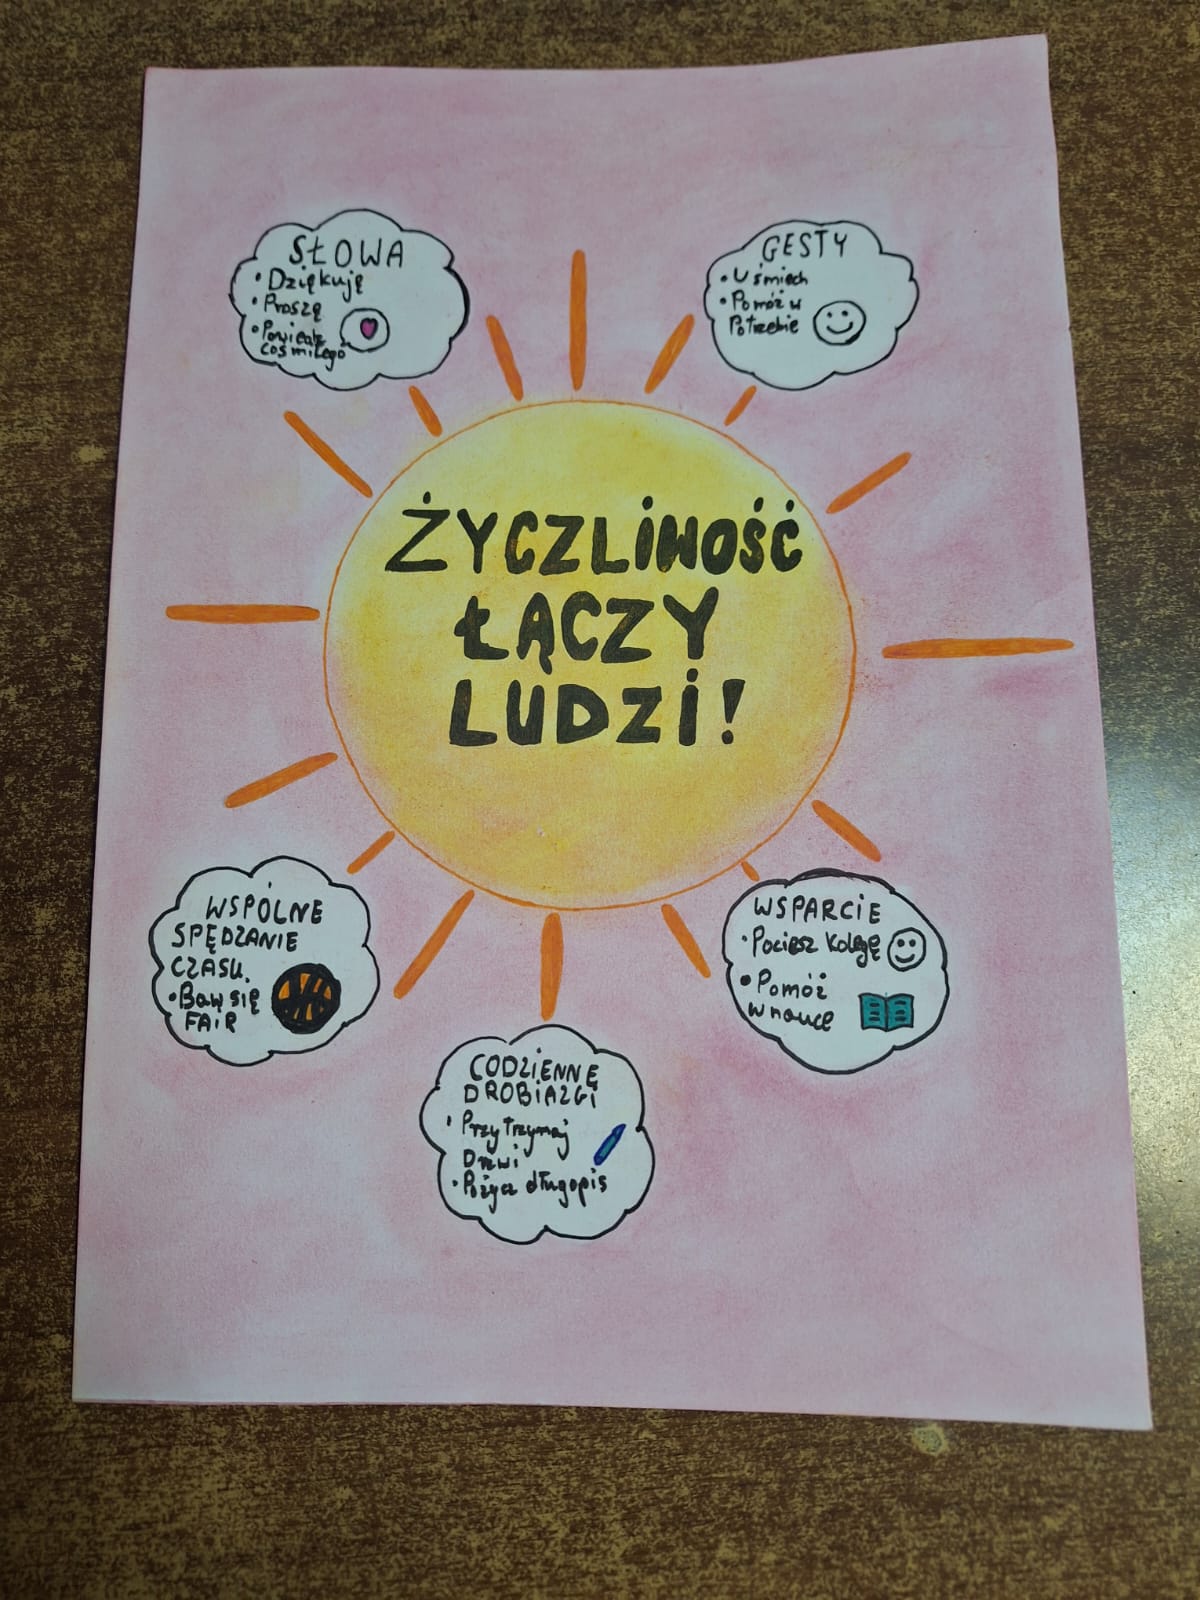 SŁOWA
• Dziękuję
• Proszę
• Powiedz
coś miłego
GESTY
• Uśmiech
• Pomóż w
Potrzebie
ŻYCZLIWOŚĆ
ŁĄCZY
LUDZI!
WSPÓLNE
SPĘDZANIE
CZASU.
• Baw się
FAIR
WSPARCIE
• Pociesz kolegę
• Pomóż
w nauce
CODZIENNĘ
DROBIAZGI
• Przytrzymaj
Drzwi
• Pożycz długopis